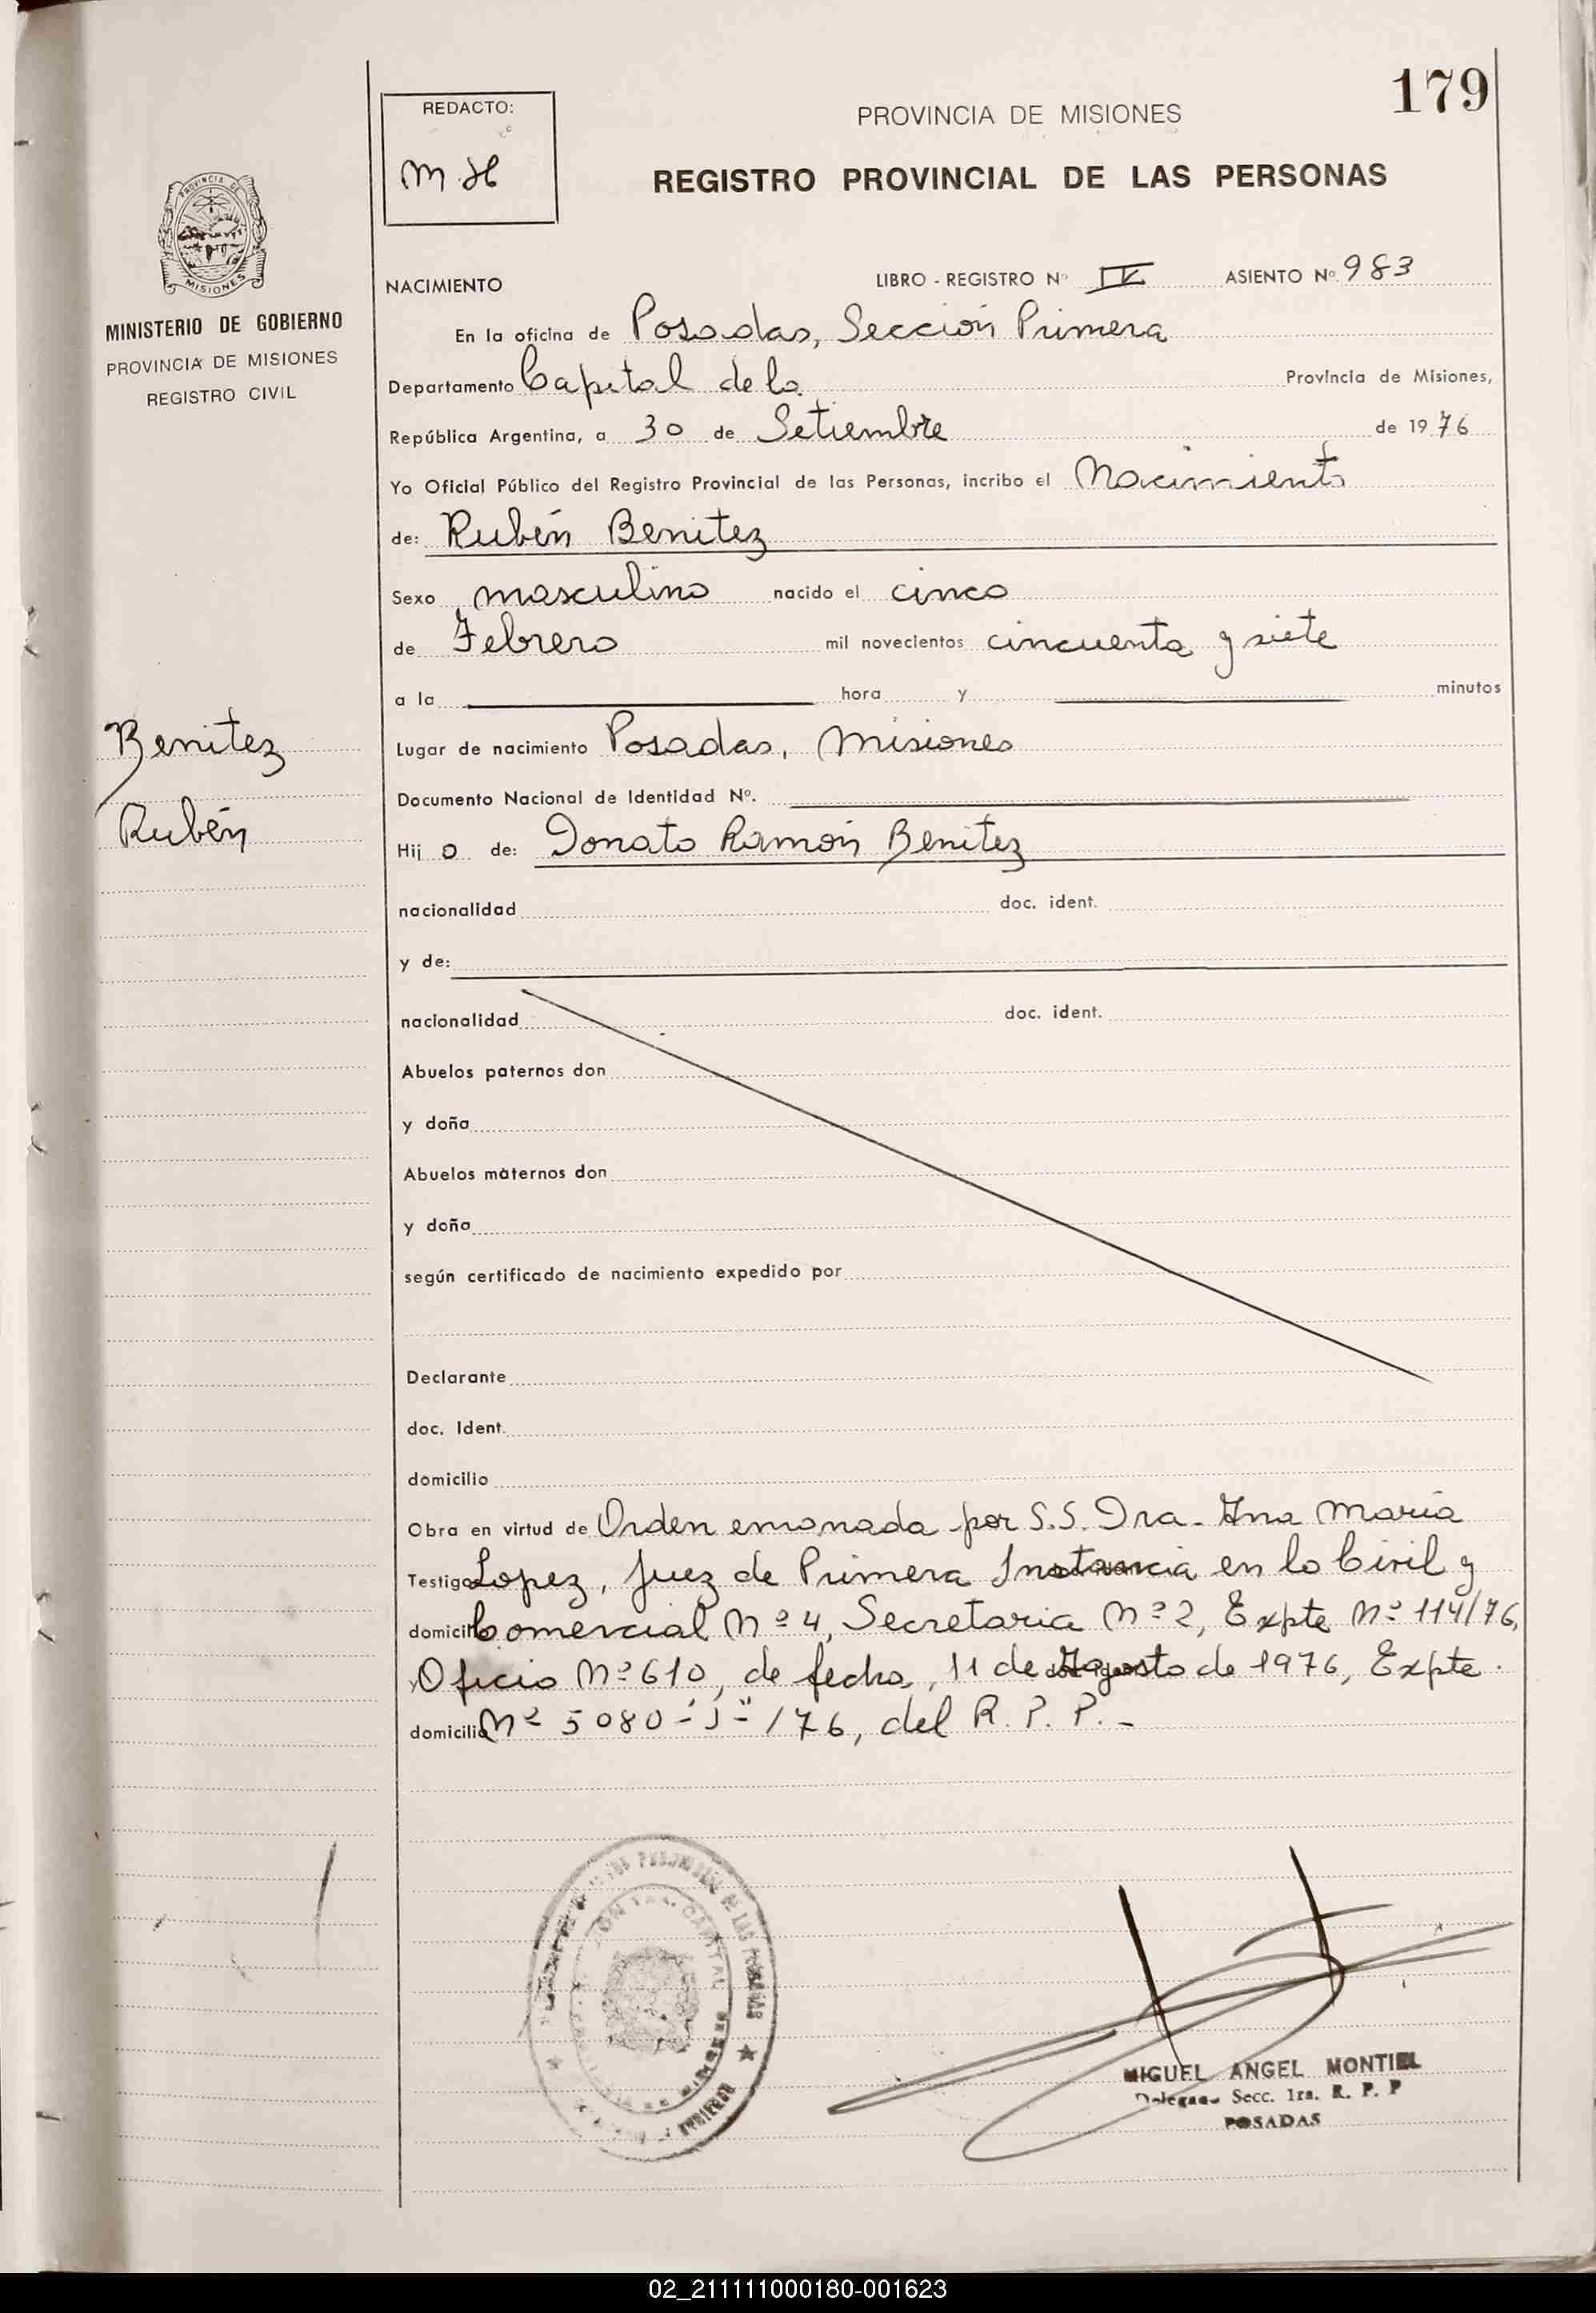 179
REDACTO:
M.H
PROVINCIA DE MISIONES
REGISTRO PROVINCIAL DE LAS PERSONAS
PROVINCIA DE
MISIONES
MINISTERIO DE GOBIERNO
PROVINCIA DE MISIONES
REGISTRO CIVIL
NACIMIENTO LIBRO - REGISTRO Nº IV ASIENTO Nº 983
En la oficina de Posadas, Sección Primera
Departamento Capital de la Provincia de Misiones,
República Argentina, a 30 de Setiembre de 1976
Yo Oficial Público del Registro Provincial de las Personas, incribo el Nacimiento
de: Rubén Benitez
Sexo masculino nacido el cinco
de Febrero mil novecientos cincuenta y siete
a la hora y minutos
Benitez
Rubén
Lugar de nacimiento Posadas, Misiones
Documento Nacional de Identidad Nº.
Hij o de: Donato Ramón Benitez
nacionalidad doc. ident.
y de:
nacionalidad doc. ident.
Abuelos paternos don
y doña
Abuelos maternos don
y doña
según certificado de nacimiento expedido por
Declarante
doc. Ident.
domicilio
Obra en virtud de Orden emanada por S.S. Dra. Ana María
Testigo Lopez, Juez de Primera Instancia en lo Civil y
domicilio Comercial Nº 4, Secretaria Nº 2, Expte Nº 114/76,
Oficio Nº 610, de fecha, 11 de Agosto de 1976, Expte.
domicilio Nº 5080-"J"-/76, del R.P.P.-
PROVINCIAL DE LAS PERSONAS
CAPITAL
MIGUEL ANGEL MONTIEL
Delegado Secc. 1ra. R. P. P
POSADAS
02_211111000180-001623